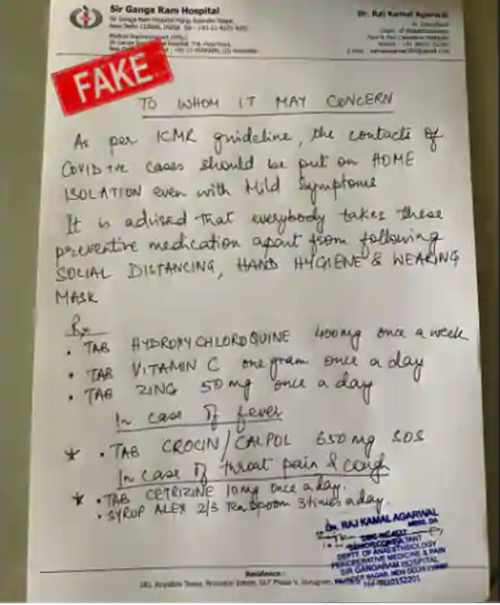 Sir Ganga Ram Hospital
Dr. Raj Kamal Agarwal
FAKE
TO WHOM IT MAY CONCERN
As per ICMR guideline, the contacts of
COVID +ve cases should be put on HOME
ISOLATION even with Mild Symptoms
It is advised that everybody takes these
preventive medication apart from following
SOCIAL DISTANCING, HAND HYGIENE & WEARING
MASK
Rx
• TAB HYDROXYCHLOROQUINE 400mg once a week
• TAB VITAMIN C one gram once a day
• TAB ZING 50mg once a day
In case of fever
* • TAB CROCIN/CALPOL 650mg SOS
In case of throat pain & cough
* • TAB CETRIZINE 10mg once a day.
• SYRUP ALEX 2/3 Teaspoon 3 times a day.
Dr. RAJ KAMAL AGARWAL
DEPTT OF ANAESTHSIOLOGY
PERIOPERATIVE MEDICINE & PAIN
SIR GANGARAM HOSPITAL
Residence :